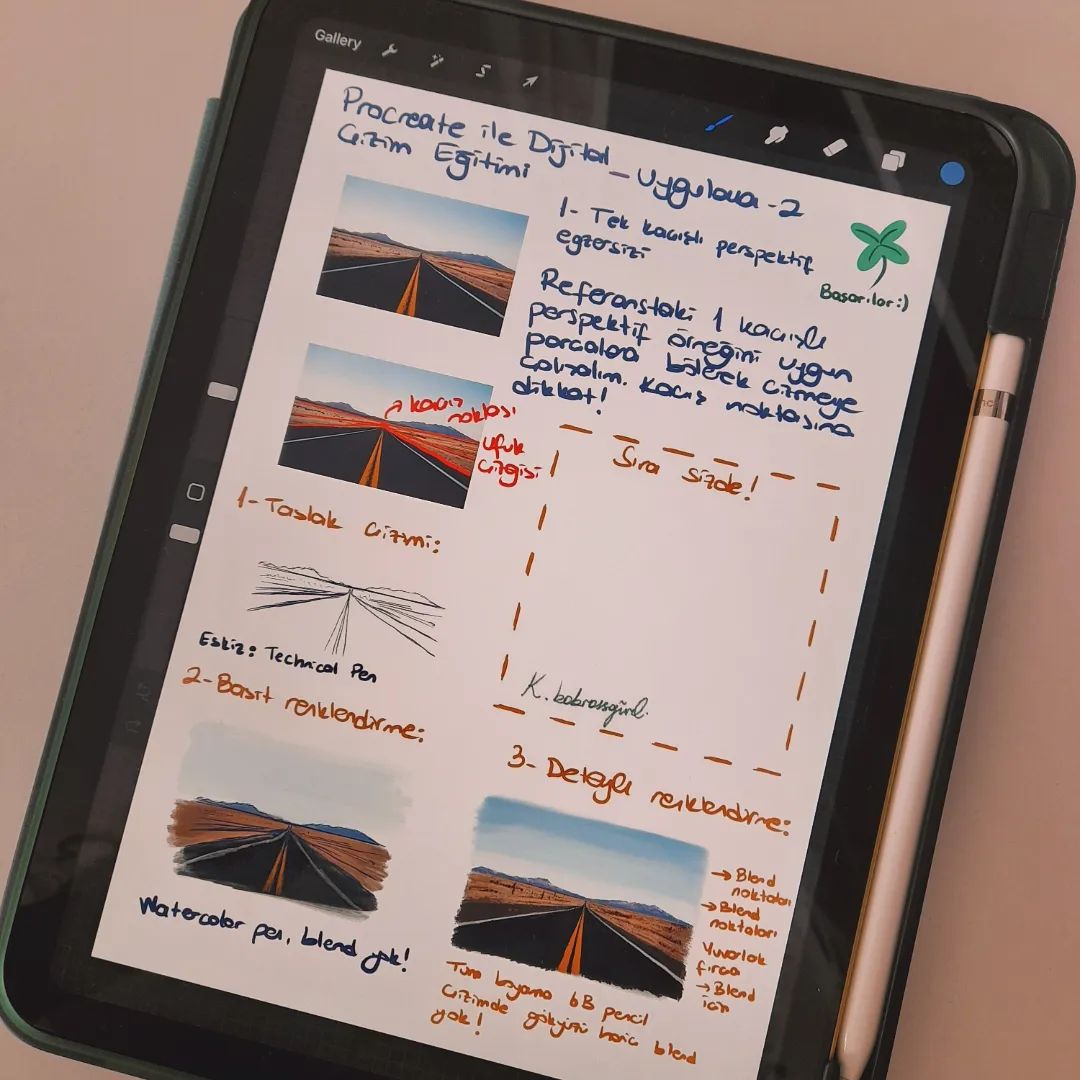 Gallery
Procreate ile Dijital - Uygulama - 2
Çizim Eğitimi
1- Tek kaçışlı perspektif
egzersizi
Başarılar :)
Referanstaki 1 kaçışlı
perspektif örneğini uygun
parçalara bölerek çizmeye
çalışalım. Kaçış noktasına
dikkat!
kaçış
noktası
ufuk
çizgisi
Sıra sizde!
1- Taslak çizimi:
Eskiz: Technical Pen
2- Basit renklendirme:
Watercolor pen, blend yok!
3- Detaylı renklendirme:
→ Blend
noktaları
→ Blend
noktaları
Yuvarlak
fırça
→ Blend
için
Tüm boyama 6B pencil
Çizimde gökyüzü hariç blend
yok!